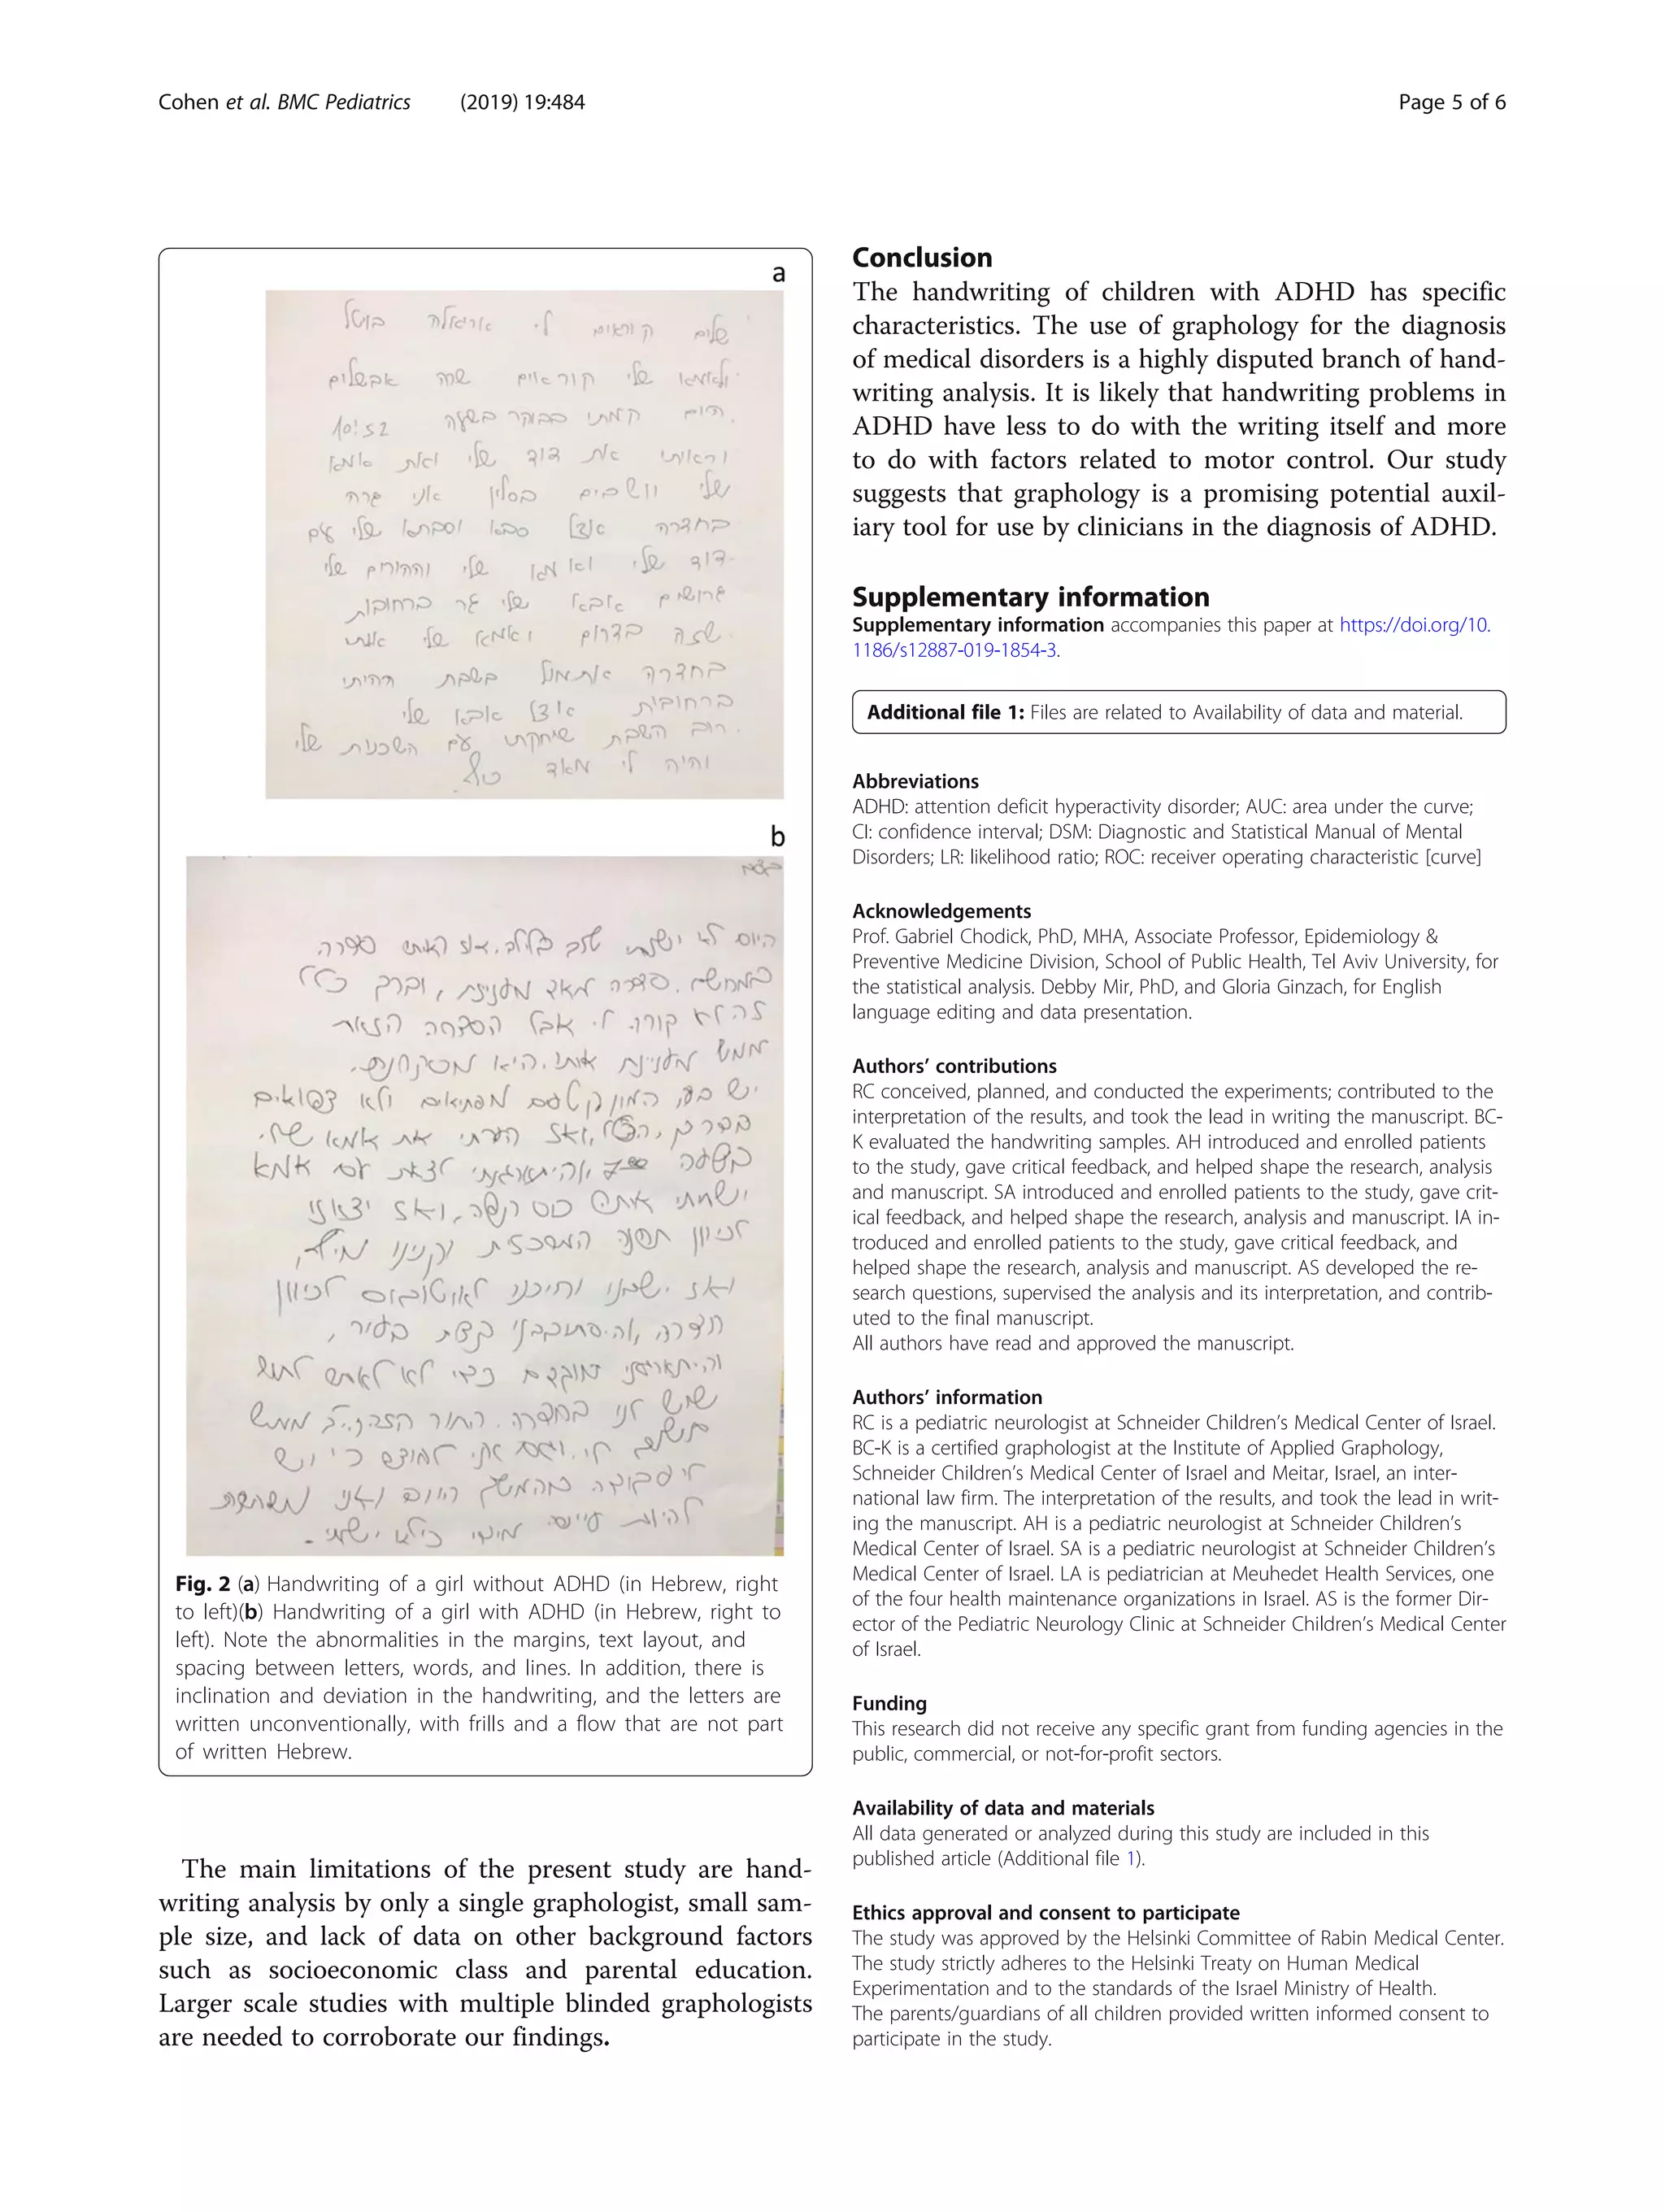 Cohen et al. BMC Pediatrics (2019) 19:484
Page 5 of 6
a
שלום קוראים לי
ולאמא שלי קוראים שרה אבשלום
היום קמתי בבוקר בשעה 10:52
וראיתי את דוד שלי ואת אמא
שלי יושבים בסלון אני גרה
בחדרה אצל סבא וסבתא שלי עם
דוד שלי ואמא שלי וההורים שלי
גרושים אבא שלי גר ברחובות
שזה בדרום ואמא שלי איתי
בחדרה אתמול בשבת הייתי
ברחובות אצל אבא שלי
רוב השבת שיחקתי עם השכנות שלי
והיה לי מאד כיף
b
היום לא ישנתי טוב בלילה. אז ראיתי סדרה
סדרה מאד מעניינת, ובדרך כלל
זה לא קורה לי אבל הסדרה הזאת
ממש מעניינת אותי. היא
יש בה המון קטעים מפתיעים ולא צפויים
ואז הערתי את אמא שלי.
בשעה והיתארגנתי לצאת עם אמא
כוס קפה, ואז יצאנו
לכיוון תחנה המרכזית וקנינו
ואז ישבנו וחיכנו לאוטובוס לכיוון
חדרה, והיסתובבנו קצת בעיר,
והיתארגנו מוקדם כדי לא לאחר לתור
שיש לנו בחדרה. התור הזה ממש
לי. וגם אני כי יש
לי עבודה בהמשך היום ואני
להיות עייפה כי לא ישנתי.
Fig. 2 (a) Handwriting of a girl without ADHD (in Hebrew, right
to left)(b) Handwriting of a girl with ADHD (in Hebrew, right to
left). Note the abnormalities in the margins, text layout, and
spacing between letters, words, and lines. In addition, there is
inclination and deviation in the handwriting, and the letters are
written unconventionally, with frills and a flow that are not part
of written Hebrew.
The main limitations of the present study are hand-
writing analysis by only a single graphologist, small sam-
ple size, and lack of data on other background factors
such as socioeconomic class and parental education.
Larger scale studies with multiple blinded graphologists
are needed to corroborate our findings.
Conclusion
The handwriting of children with ADHD has specific
characteristics. The use of graphology for the diagnosis
of medical disorders is a highly disputed branch of hand-
writing analysis. It is likely that handwriting problems in
ADHD have less to do with the writing itself and more
to do with factors related to motor control. Our study
suggests that graphology is a promising potential auxil-
iary tool for use by clinicians in the diagnosis of ADHD.
Supplementary information
Supplementary information accompanies this paper at https://doi.org/10.
1186/s12887-019-1854-3.
Additional file 1: Files are related to Availability of data and material.
Abbreviations
ADHD: attention deficit hyperactivity disorder; AUC: area under the curve;
CI: confidence interval; DSM: Diagnostic and Statistical Manual of Mental
Disorders; LR: likelihood ratio; ROC: receiver operating characteristic [curve]
Acknowledgements
Prof. Gabriel Chodick, PhD, MHA, Associate Professor, Epidemiology &
Preventive Medicine Division, School of Public Health, Tel Aviv University, for
the statistical analysis. Debby Mir, PhD, and Gloria Ginzach, for English
language editing and data presentation.
Authors' contributions
RC conceived, planned, and conducted the experiments; contributed to the
interpretation of the results, and took the lead in writing the manuscript. BC-
K evaluated the handwriting samples. AH introduced and enrolled patients
to the study, gave critical feedback, and helped shape the research, analysis
and manuscript. SA introduced and enrolled patients to the study, gave crit-
ical feedback, and helped shape the research, analysis and manuscript. IA in-
troduced and enrolled patients to the study, gave critical feedback, and
helped shape the research, analysis and manuscript. AS developed the re-
search questions, supervised the analysis and its interpretation, and contrib-
uted to the final manuscript.
All authors have read and approved the manuscript.
Authors' information
RC is a pediatric neurologist at Schneider Children's Medical Center of Israel.
BC-K is a certified graphologist at the Institute of Applied Graphology,
Schneider Children's Medical Center of Israel and Meitar, Israel, an inter-
national law firm. The interpretation of the results, and took the lead in writ-
ing the manuscript. AH is a pediatric neurologist at Schneider Children's
Medical Center of Israel. SA is a pediatric neurologist at Schneider Children's
Medical Center of Israel. LA is pediatrician at Meuhedet Health Services, one
of the four health maintenance organizations in Israel. AS is the former Dir-
ector of the Pediatric Neurology Clinic at Schneider Children's Medical Center
of Israel.
Funding
This research did not receive any specific grant from funding agencies in the
public, commercial, or not-for-profit sectors.
Availability of data and materials
All data generated or analyzed during this study are included in this
published article (Additional file 1).
Ethics approval and consent to participate
The study was approved by the Helsinki Committee of Rabin Medical Center.
The study strictly adheres to the Helsinki Treaty on Human Medical
Experimentation and to the standards of the Israel Ministry of Health.
The parents/guardians of all children provided written informed consent to
participate in the study.